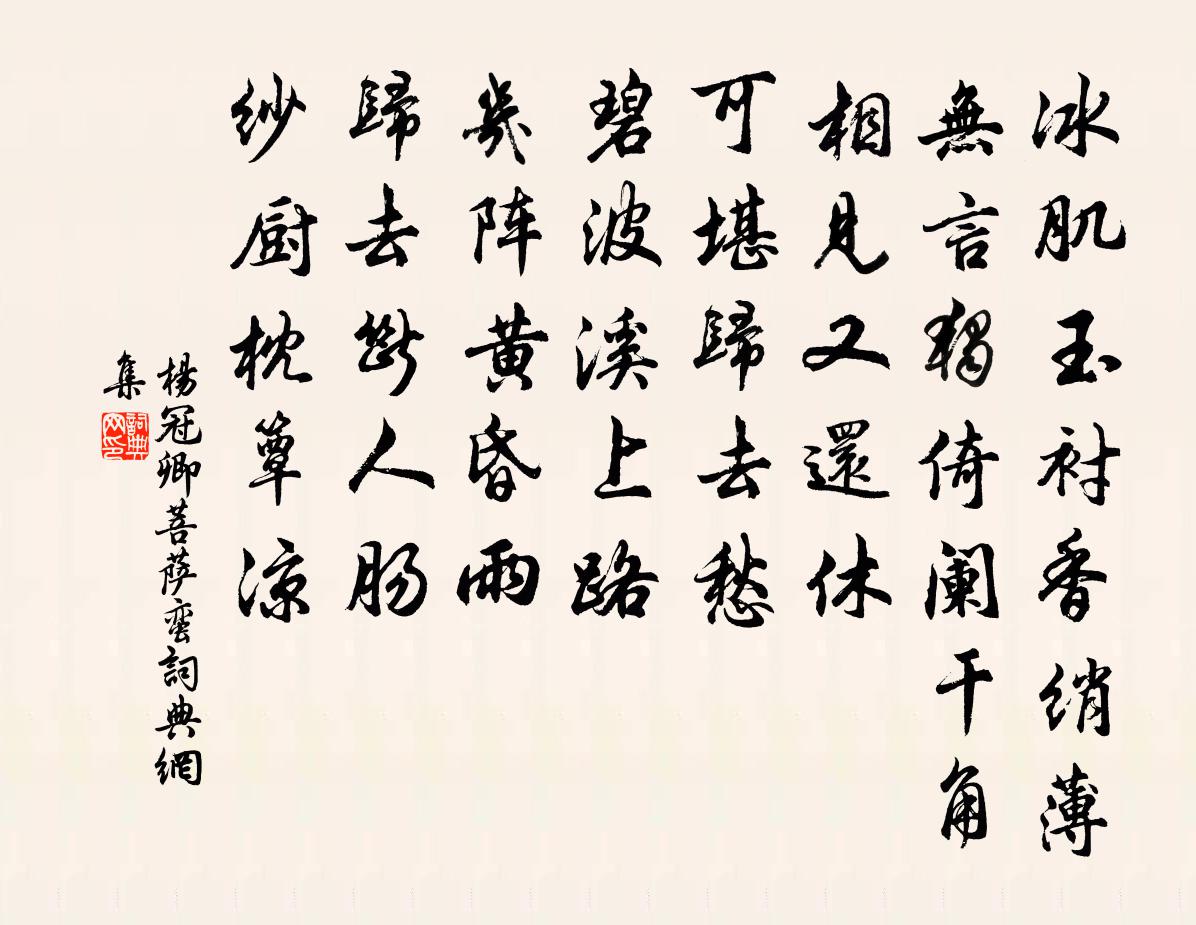 冰肌玉衬香绡薄
無言獨倚阑干角
相見又還休
可堪歸去愁
碧波溪上路
幾阵黄昏雨
歸去斷人肠
纱厨枕簟凉
楊冠卿菩萨蛮詞典網
集
詞典网印